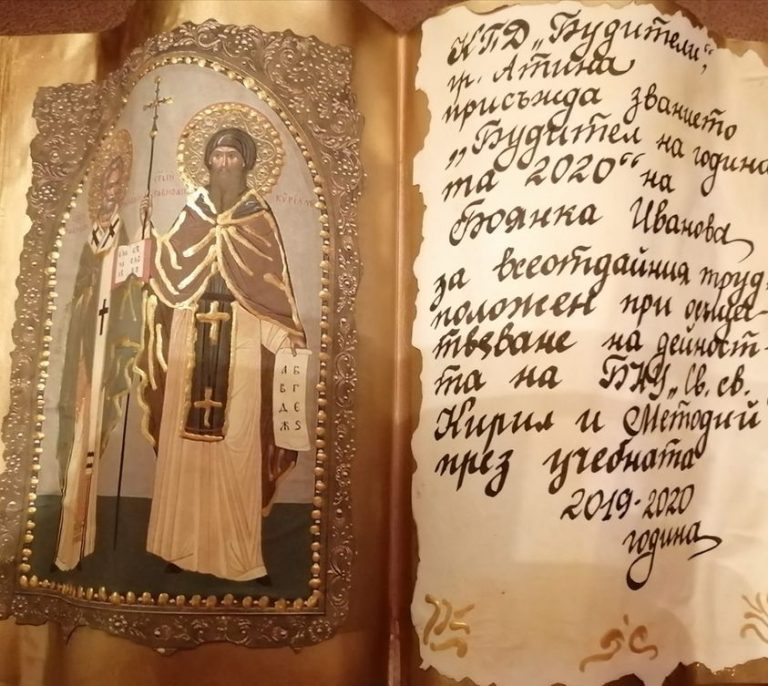 КУРІЛЛ
А Б
В Г
Д Є
Ж Ѕ
КПД „Будители“,
гр. Атина
присъжда званието
„Будител на година
та 2020“ на
Боянка Иванова
за всеотдайния труд,
положен при осъще-
твяване на дейност-
та на БНУ „Св. св.
Кирил и Методий
през учебната
2019-2020
година